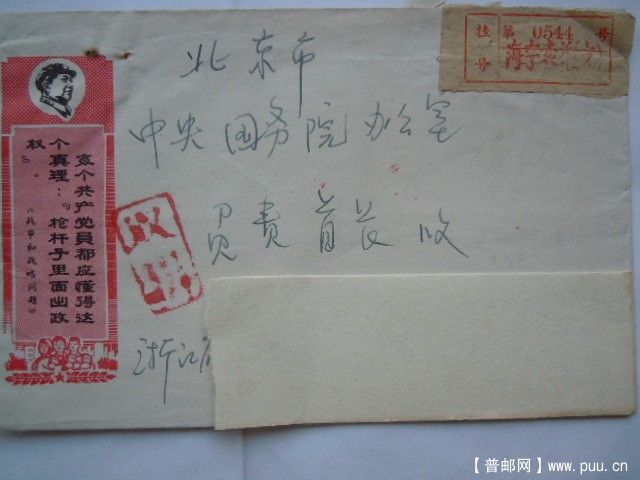 北京市
中央国务院办公室
负责首长收
浙江省
挂号
第0544号
每个共产党员都应懂得这
个真理：“枪杆子里面出政
权”。
《战争和战略问题》
【普邮网】www.puu.cn